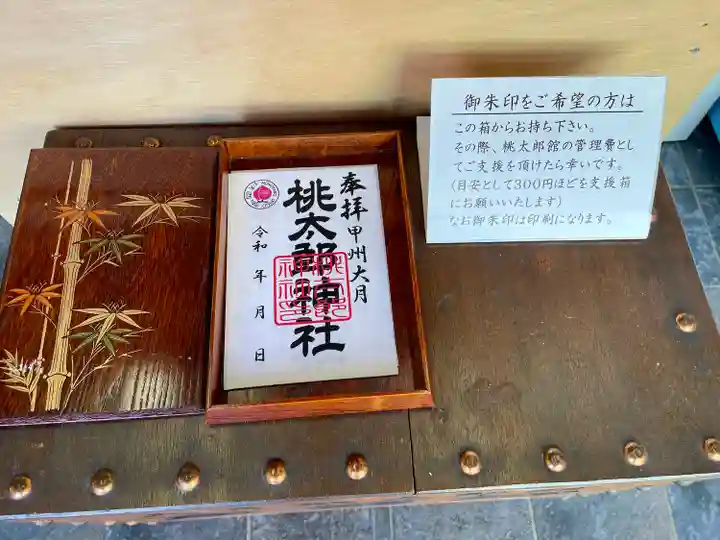 奉拝
甲州大月
桃太郎神社
令和　年　月　日
御朱印をご希望の方は
この箱からお持ち下さい。
その際、桃太郎館の管理費とし
てご支援を頂けたら幸いです。
(目安として300円ほどを支援箱
にお願いいたします)
なお御朱印は印刷になります。